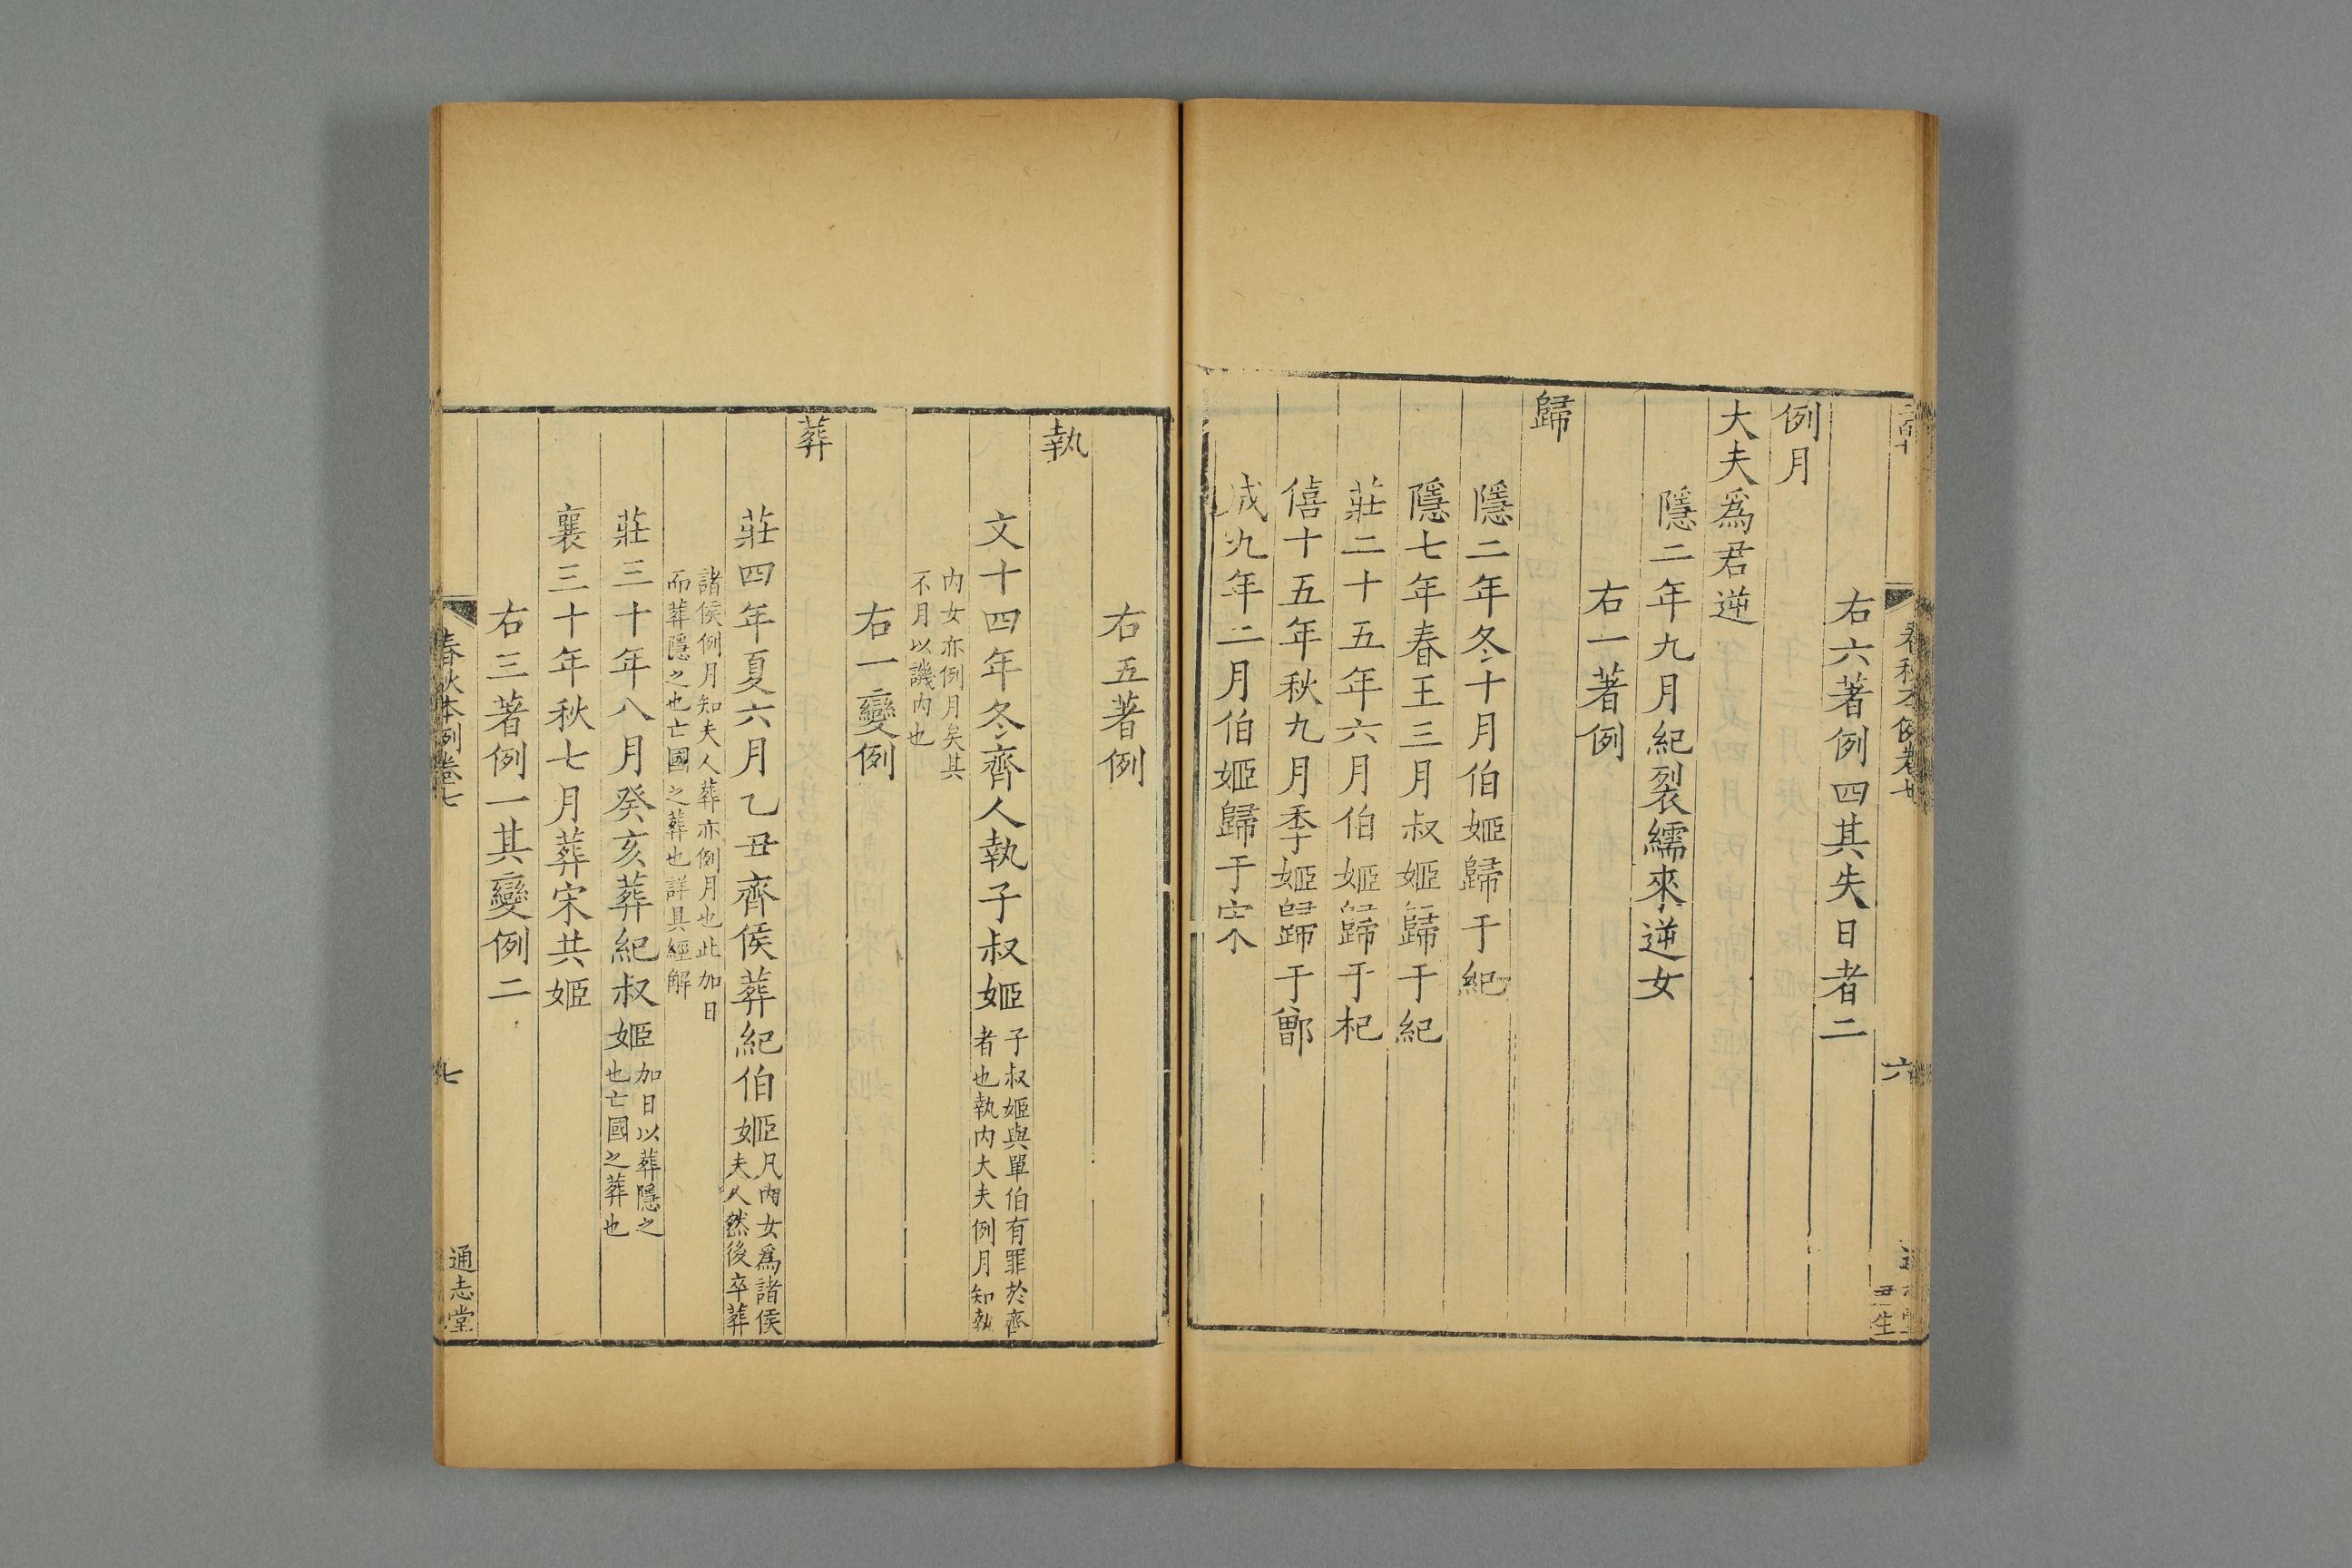 春秋本例卷七
六
右六著例四其失日者二
例月
大夫爲君逆
隱二年九月紀裂繻來逆女
右一著例
歸
隱二年冬十月伯姬歸于紀
隱七年春王三月叔姬歸于紀
莊二十五年六月伯姬歸于杞
僖十五年秋九月季姬歸于鄫
成九年二月伯姬歸于宋
右五著例
執
文十四年冬齊人執子叔姬子叔姬與單伯有罪於齊
者也執內大夫例月知執
內女亦例月矣其
不月以譏內也
右一變例
葬
莊四年夏六月乙丑齊侯葬紀伯姬凡內女爲諸侯
夫人然後卒葬
諸侯例月知夫人葬亦例月也此加日
而葬隱之也亡國之葬也詳具經解
莊三十年八月癸亥葬紀叔姬加日以葬隱之
也亡國之葬也
襄三十年秋七月葬宋共姬
右三著例一其變例二
春秋本例卷七
七
通志堂